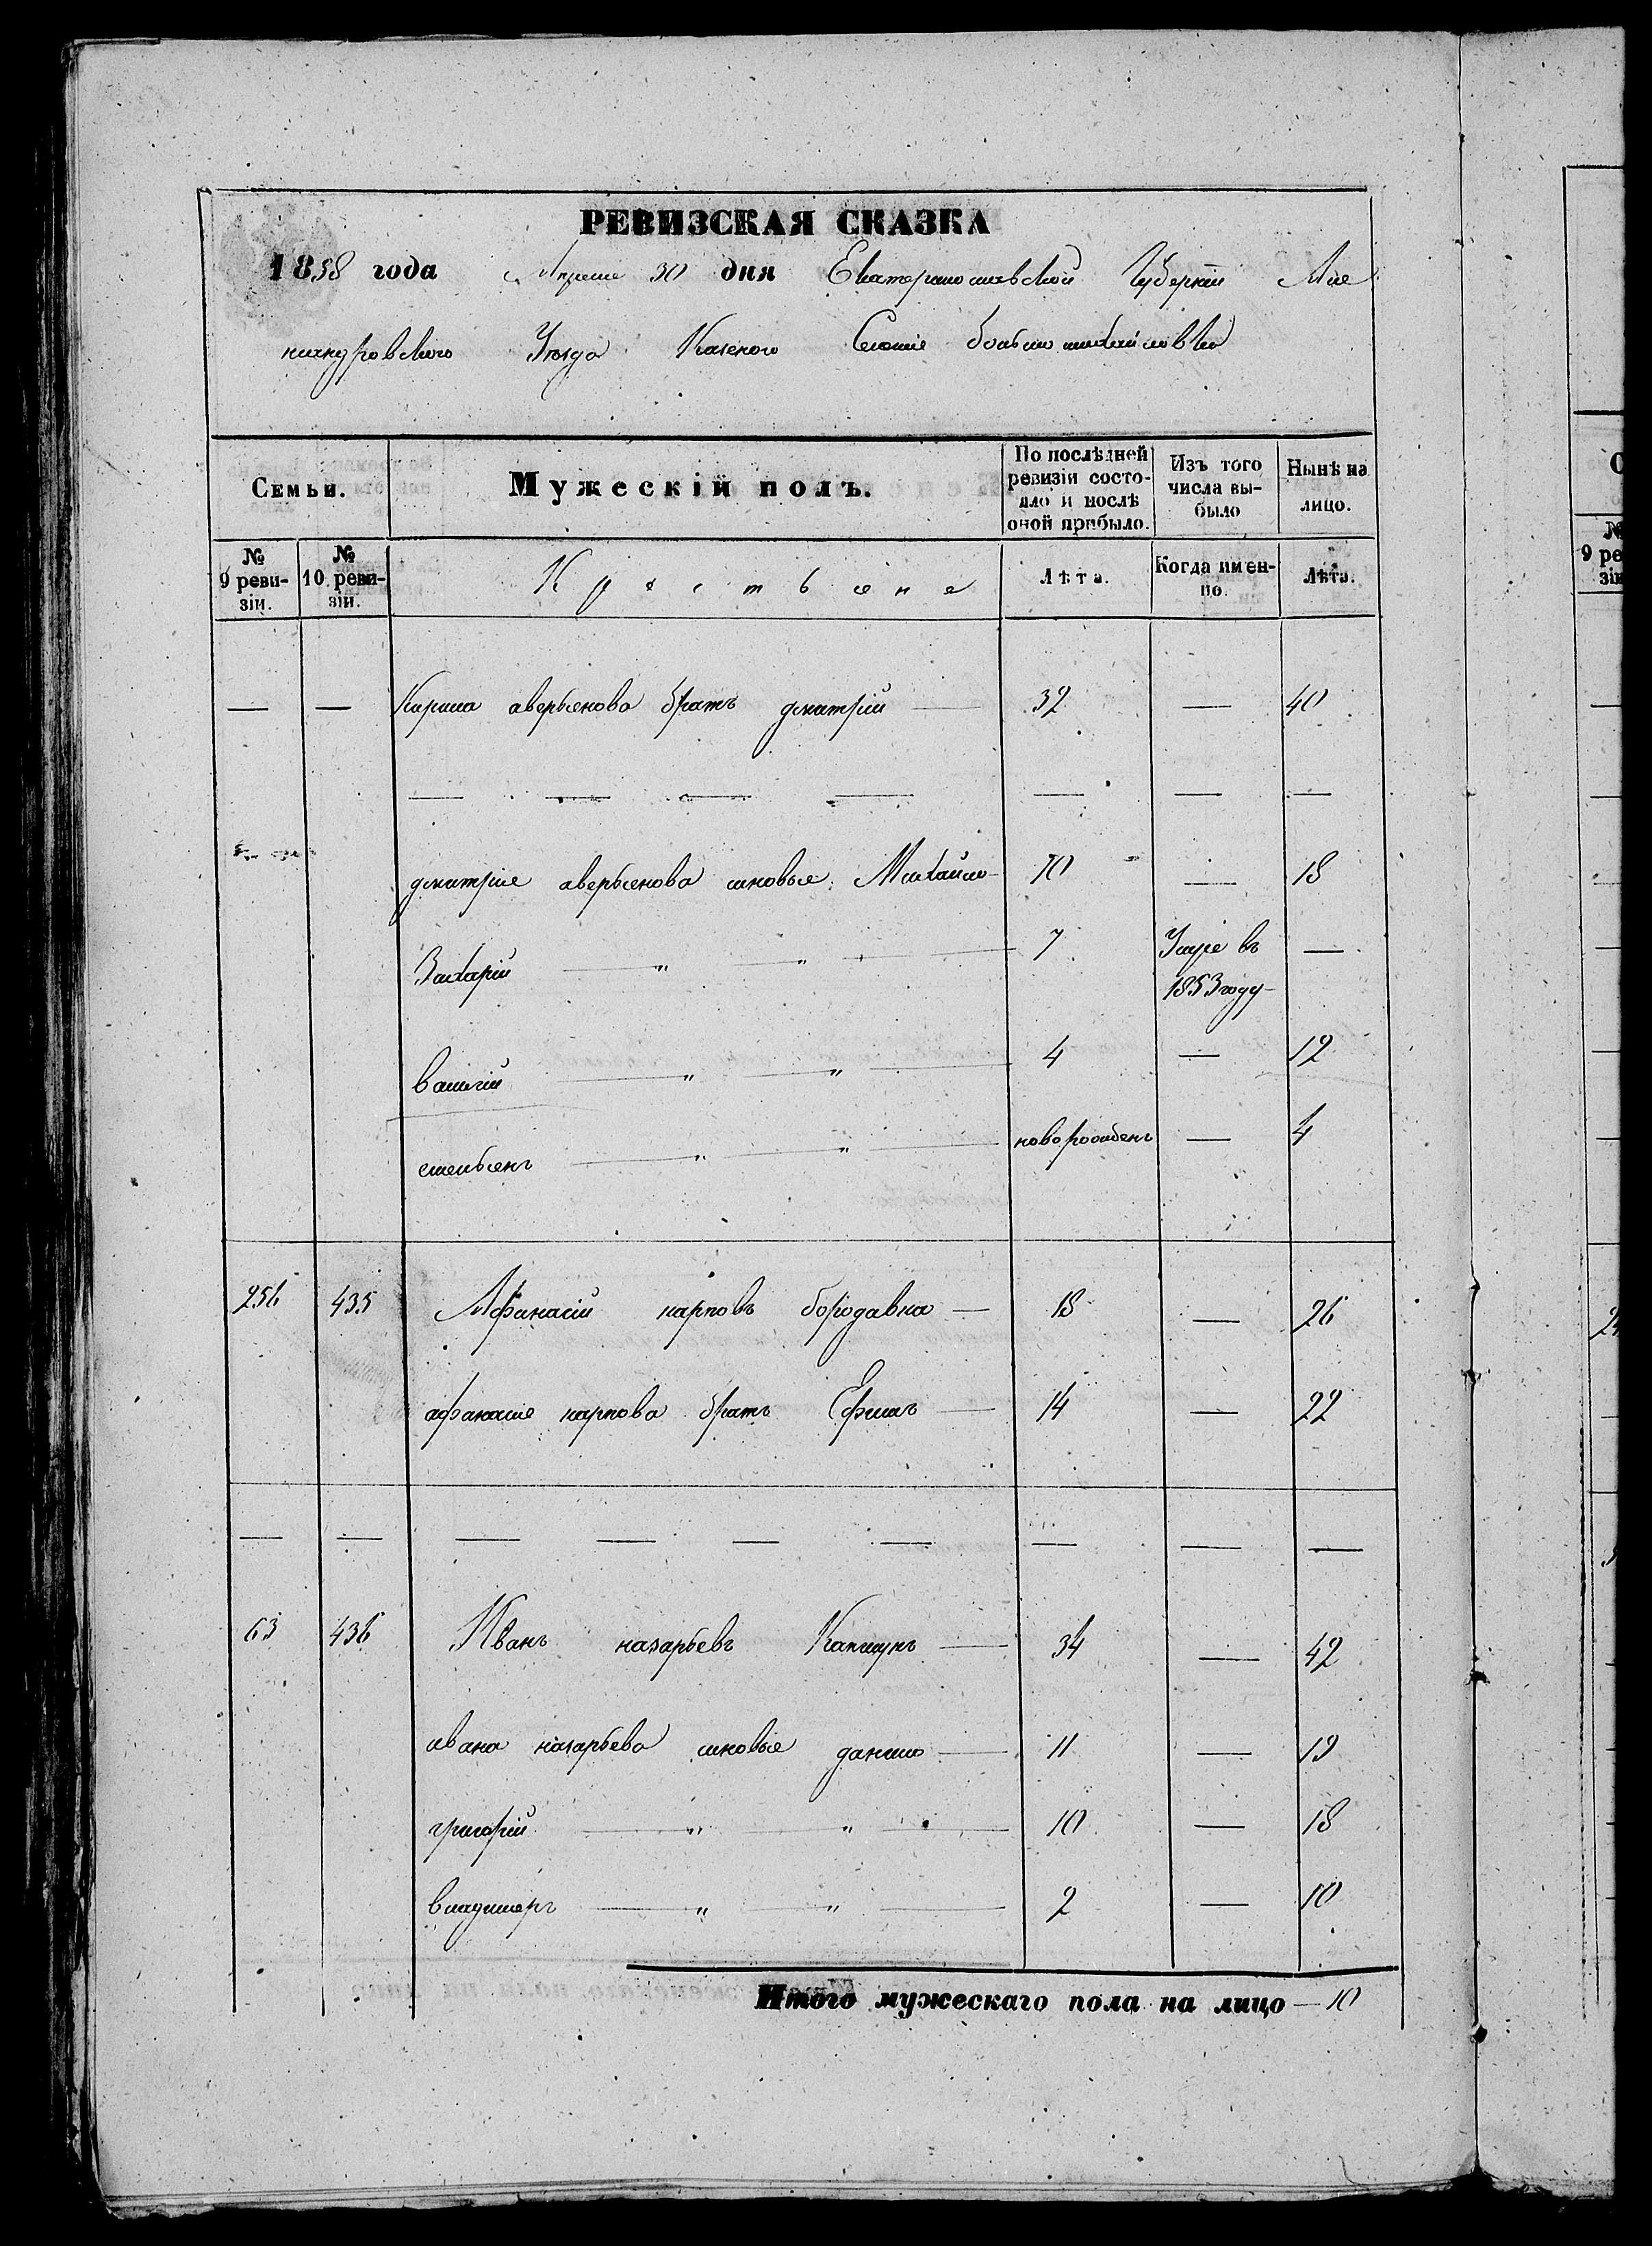 РЕВИЗСКАЯ СКАЗКА
1858 года Апреля 30 дня Екатеринославской Губернии Але
ксандровского Уезда Казеного Селения большемихайловки
Семьи. Мужескій полъ. По послѣдней ревизіи состояло и послѣ оной прибыло. Изъ того числа выбыло Нынѣ на лицо.
№ 9 ревизіи. № 10 ревизіи. Крестьяне Лѣта. Когда именно. Лѣта.
— — Кирила аверьянова братъ дмитрій — 32 — 40
— — — — — — —
дмитрія аверьянова сыновья: Михайло 10 — 18
Захарій — „ — „ — 7 Умре въ 1853 году —
василій — „ — „ — 4 — 12
емельянъ — „ — „ — новорожденъ — 4
256 435 Афанасій карповъ бородавка — 18 — 26
афанасия карпова братъ Ефимъ — 14 — 22
— — — — — — — — —
63 436 Иванъ назарьевъ Капшукъ — 34 — 42
ивана назарьева сыновья данило — 11 — 19
григорій — „ — „ — 10 — 18
владимеръ — „ — „ — 2 — 10
Итого мужескаго пола на лицо — 10
9 ре
зіи